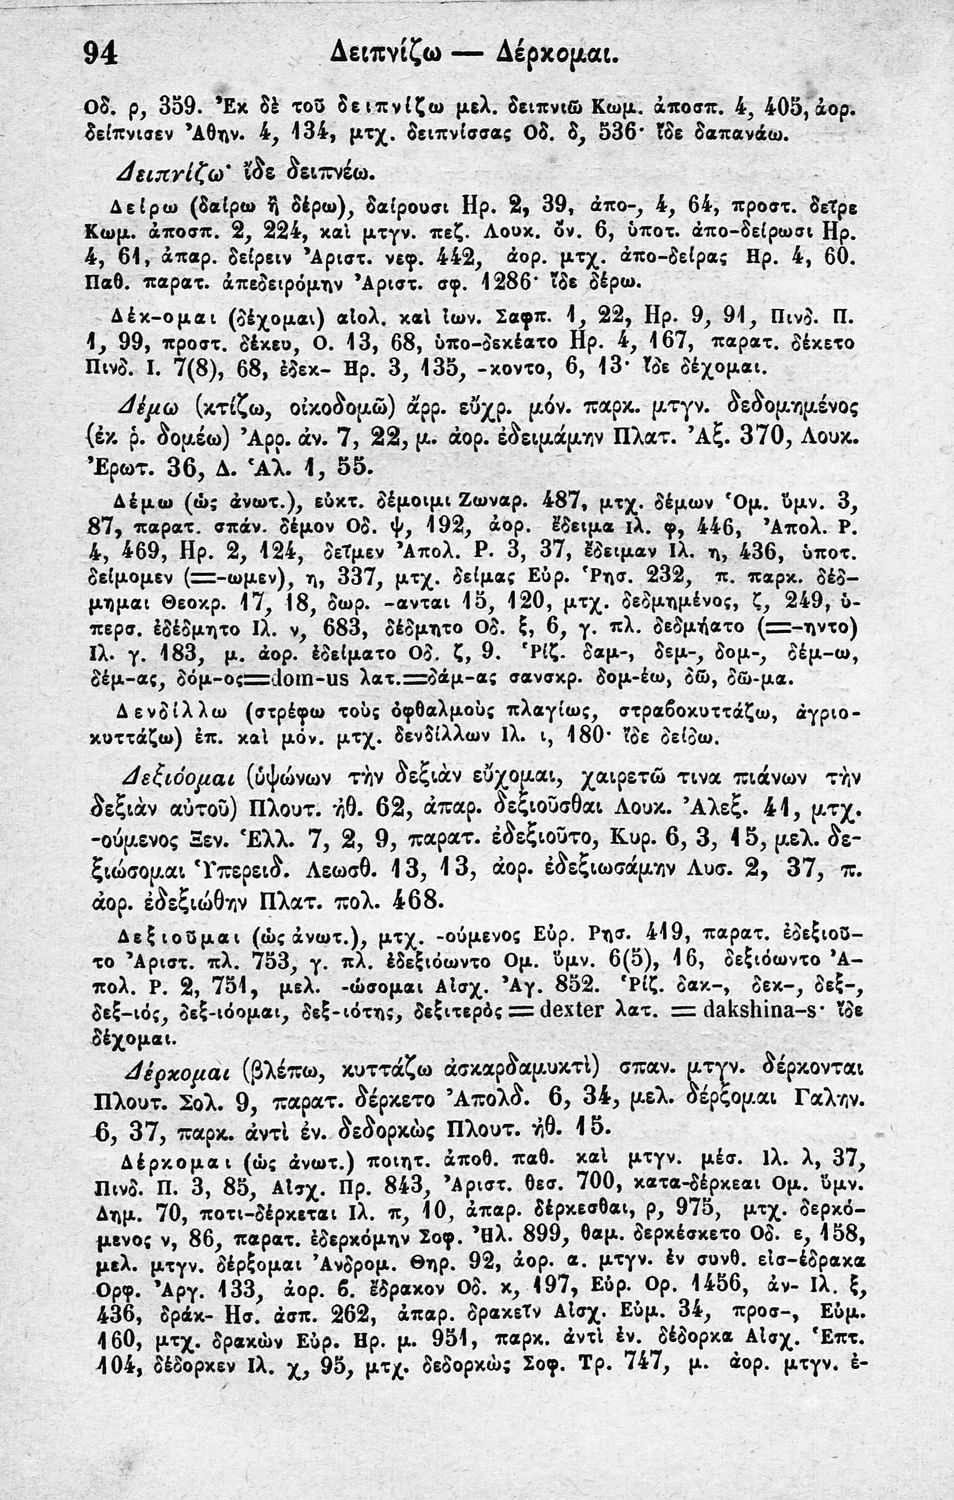 94 Δειπνίζω — Δέρκομαι.
Οδ. ρ, 359. Ἐκ δὲ τοῦ δειπνίζω μελ. δειπνιῶ Κωμ. ἀποσπ. 4, 405, ἀορ.
δείπνισεν Ἀθην. 4, 134, μτχ. δειπνίσσας Οδ. δ, 536· ἴδε δαπανάω.
Δειπνίζω· ἴδε δειπνέω.
Δείρω (δαίρω ἢ δέρω), δαίρουσι Ηρ. 2, 39, ἀπο-, 4, 64, προστ. δεῖρε
Κωμ. ἀποσπ. 2, 224, καὶ μτγν. πεζ. Λουκ. ὄν. 6, ὑποτ. ἀπο-δείρωσι Ηρ.
4, 61, ἀπαρ. δείρειν Ἀριστ. νεφ. 442, ἀορ. μτχ. ἀπο-δείρας Ηρ. 4, 60.
Παθ. παρατ. ἀπεδειρόμην Ἀριστ. σφ. 1286· ἴδε δέρω.
Δέκ-ομαι (δέχομαι) αἰολ. καὶ ἰων. Σαφπ. 1, 22, Ηρ. 9, 91, Πινδ. Π.
1, 99, προστ. δέκευ, Ο. 13, 68, ὑπο-δεκέατο Ηρ. 4, 167, παρατ. δέκετο
Πινδ. Ι. 7(8), 68, ἐδεκ- Ηρ. 3, 135, -κοντο, 6, 13· ἴδε δέχομαι.
Δέμω (κτίζω, οἰκοδομῶ) ἄρρ. εὔχρ. μόν. παρκ. μτγν. δεδομημένος
(ἐκ ῥ. δομέω) Ἀρρ. ἀν. 7, 22, μ. ἀορ. ἐδειμάμην Πλατ. Ἀξ. 370, Λουκ.
Ἐρωτ. 36, Δ. Ἁλ. 1, 55.
Δέμω (ὡς ἀνωτ.), εὐκτ. δέμοιμι Ζωναρ. 487, μτχ. δέμων Ὁμ. ὕμν. 3,
87, παρατ. σπάν. δέμον Οδ. ψ, 192, ἀορ. ἔδειμα Ιλ. φ, 446, Ἀπολ. Ρ.
4, 469, Ηρ. 2, 124, δεῖμεν Ἀπολ. Ρ. 3, 37, ἔδειμαν Ιλ. η, 436, ὑποτ.
δείμομεν (=-ωμεν), η, 337, μτχ. δείμας Εὐρ. Ῥησ. 232, π. παρκ. δέδ-
μημαι Θεοκρ. 17, 18, δωρ. -ανται 15, 120, μτχ. δεδμημένος, ζ, 249, ὑ-
περσ. ἐδέδμητο Ιλ. ν, 683, δέδμητο Οδ. ξ, 6, γ. πλ. δεδμήατο (=-ηντο)
Ιλ. γ. 183, μ. ἀορ. ἐδείματο Οδ. ζ, 9. Ῥίζ. δαμ-, δεμ-, δομ-, δέμ-ω,
δέμ-ας, δόμ-ος=dom-us λατ.=δάμ-ας σανσκρ. δομ-έω, δῶ, δῶ-μα.
Δενδίλλω (στρέφω τοὺς ὀφθαλμοὺς πλαγίως, στραβοκυττάζω, ἀγριο-
κυττάζω) ἐπ. καὶ μόν. μτχ. δενδίλλων Ιλ. ι, 180· ἴδε δείδω.
Δεξιόομαι (ὑψώνων τὴν δεξιὰν εὔχομαι, χαιρετῶ τινα πιάνων τὴν
δεξιὰν αὐτοῦ) Πλουτ. ἠθ. 62, ἀπαρ. δεξιοῦσθαι Λουκ. Ἀλεξ. 41, μτχ.
-ούμενος Ξεν. Ἑλλ. 7, 2, 9, παρατ. ἐδεξιοῦτο, Κυρ. 6, 3, 15, μελ. δε-
ξιώσομαι Ὑπερειδ. Λεωσθ. 13, 13, ἀορ. ἐδεξιωσάμην Λυσ. 2, 37, π.
ἀορ. ἐδεξιώθην Πλατ. πολ. 468.
Δεξιοῦμαι (ὡς ἀνωτ.), μτχ. -ούμενος Εὐρ. Ρησ. 419, παρατ. ἐδεξιοῦ-
το Ἀριστ. πλ. 753, γ. πλ. ἐδεξιόωντο Ομ. ὕμν. 6(5), 16, δεξιόωντο Ἀ-
πολ. Ρ. 2, 751, μελ. -ώσομαι Αἰσχ. Ἀγ. 852. Ῥίζ. δακ-, δεκ-, δεξ-,
δεξ-ιός, δεξ-ιόομαι, δεξ-ιότης, δεξιτερὸς = dexter λατ. = dakshina-s· ἴδε
δέχομαι.
Δέρκομαι (βλέπω, κυττάζω ἀσκαρδαμυκτὶ) σπαν. μτγν. δέρκονται
Πλουτ. Σολ. 9, παρατ. δέρκετο Ἀπολδ. 6, 34, μελ. δέρξομαι Γαλην.
6, 37, παρκ. ἀντὶ ἐν. δεδορκὼς Πλουτ. ἠθ. 15.
Δέρκομαι (ὡς ἀνωτ.) ποιητ. ἀποθ. παθ. καὶ μτγν. μέσ. Ιλ. λ, 37,
Πινδ. Π. 3, 85, Αἰσχ. Πρ. 843, Ἀριστ. θεσ. 700, κατα-δέρκεαι Ομ. ὕμν.
Δημ. 70, ποτι-δέρκεται Ιλ. π, 10, ἀπαρ. δέρκεσθαι, ρ, 975, μτχ. δερκό-
μενος ν, 86, παρατ. ἐδερκόμην Σοφ. Ἠλ. 899, θαμ. δερκέσκετο Οδ. ε, 158,
μελ. μτγν. δέρξομαι Ἀνδρομ. Θηρ. 92, ἀορ. α. μτγν. ἐν συνθ. εἰσ-έδρακα
Ορφ. Ἀργ. 133, ἀορ. β. ἔδρακον Οδ. κ, 197, Εὐρ. Ορ. 1456, ἀν- Ιλ. ξ,
436, δράκ- Ησ. ἀσπ. 262, ἀπαρ. δρακεῖν Αἰσχ. Εὐμ. 34, προσ-, Εὐμ.
160, μτχ. δρακὼν Εὐρ. Ηρ. μ. 951, παρκ. ἀντὶ ἐν. δέδορκα Αἰσχ. Ἑπτ.
104, δέδορκεν Ιλ. χ, 95, μτχ. δεδορκὼς Σοφ. Τρ. 747, μ. ἀορ. μτγν. ἐ-